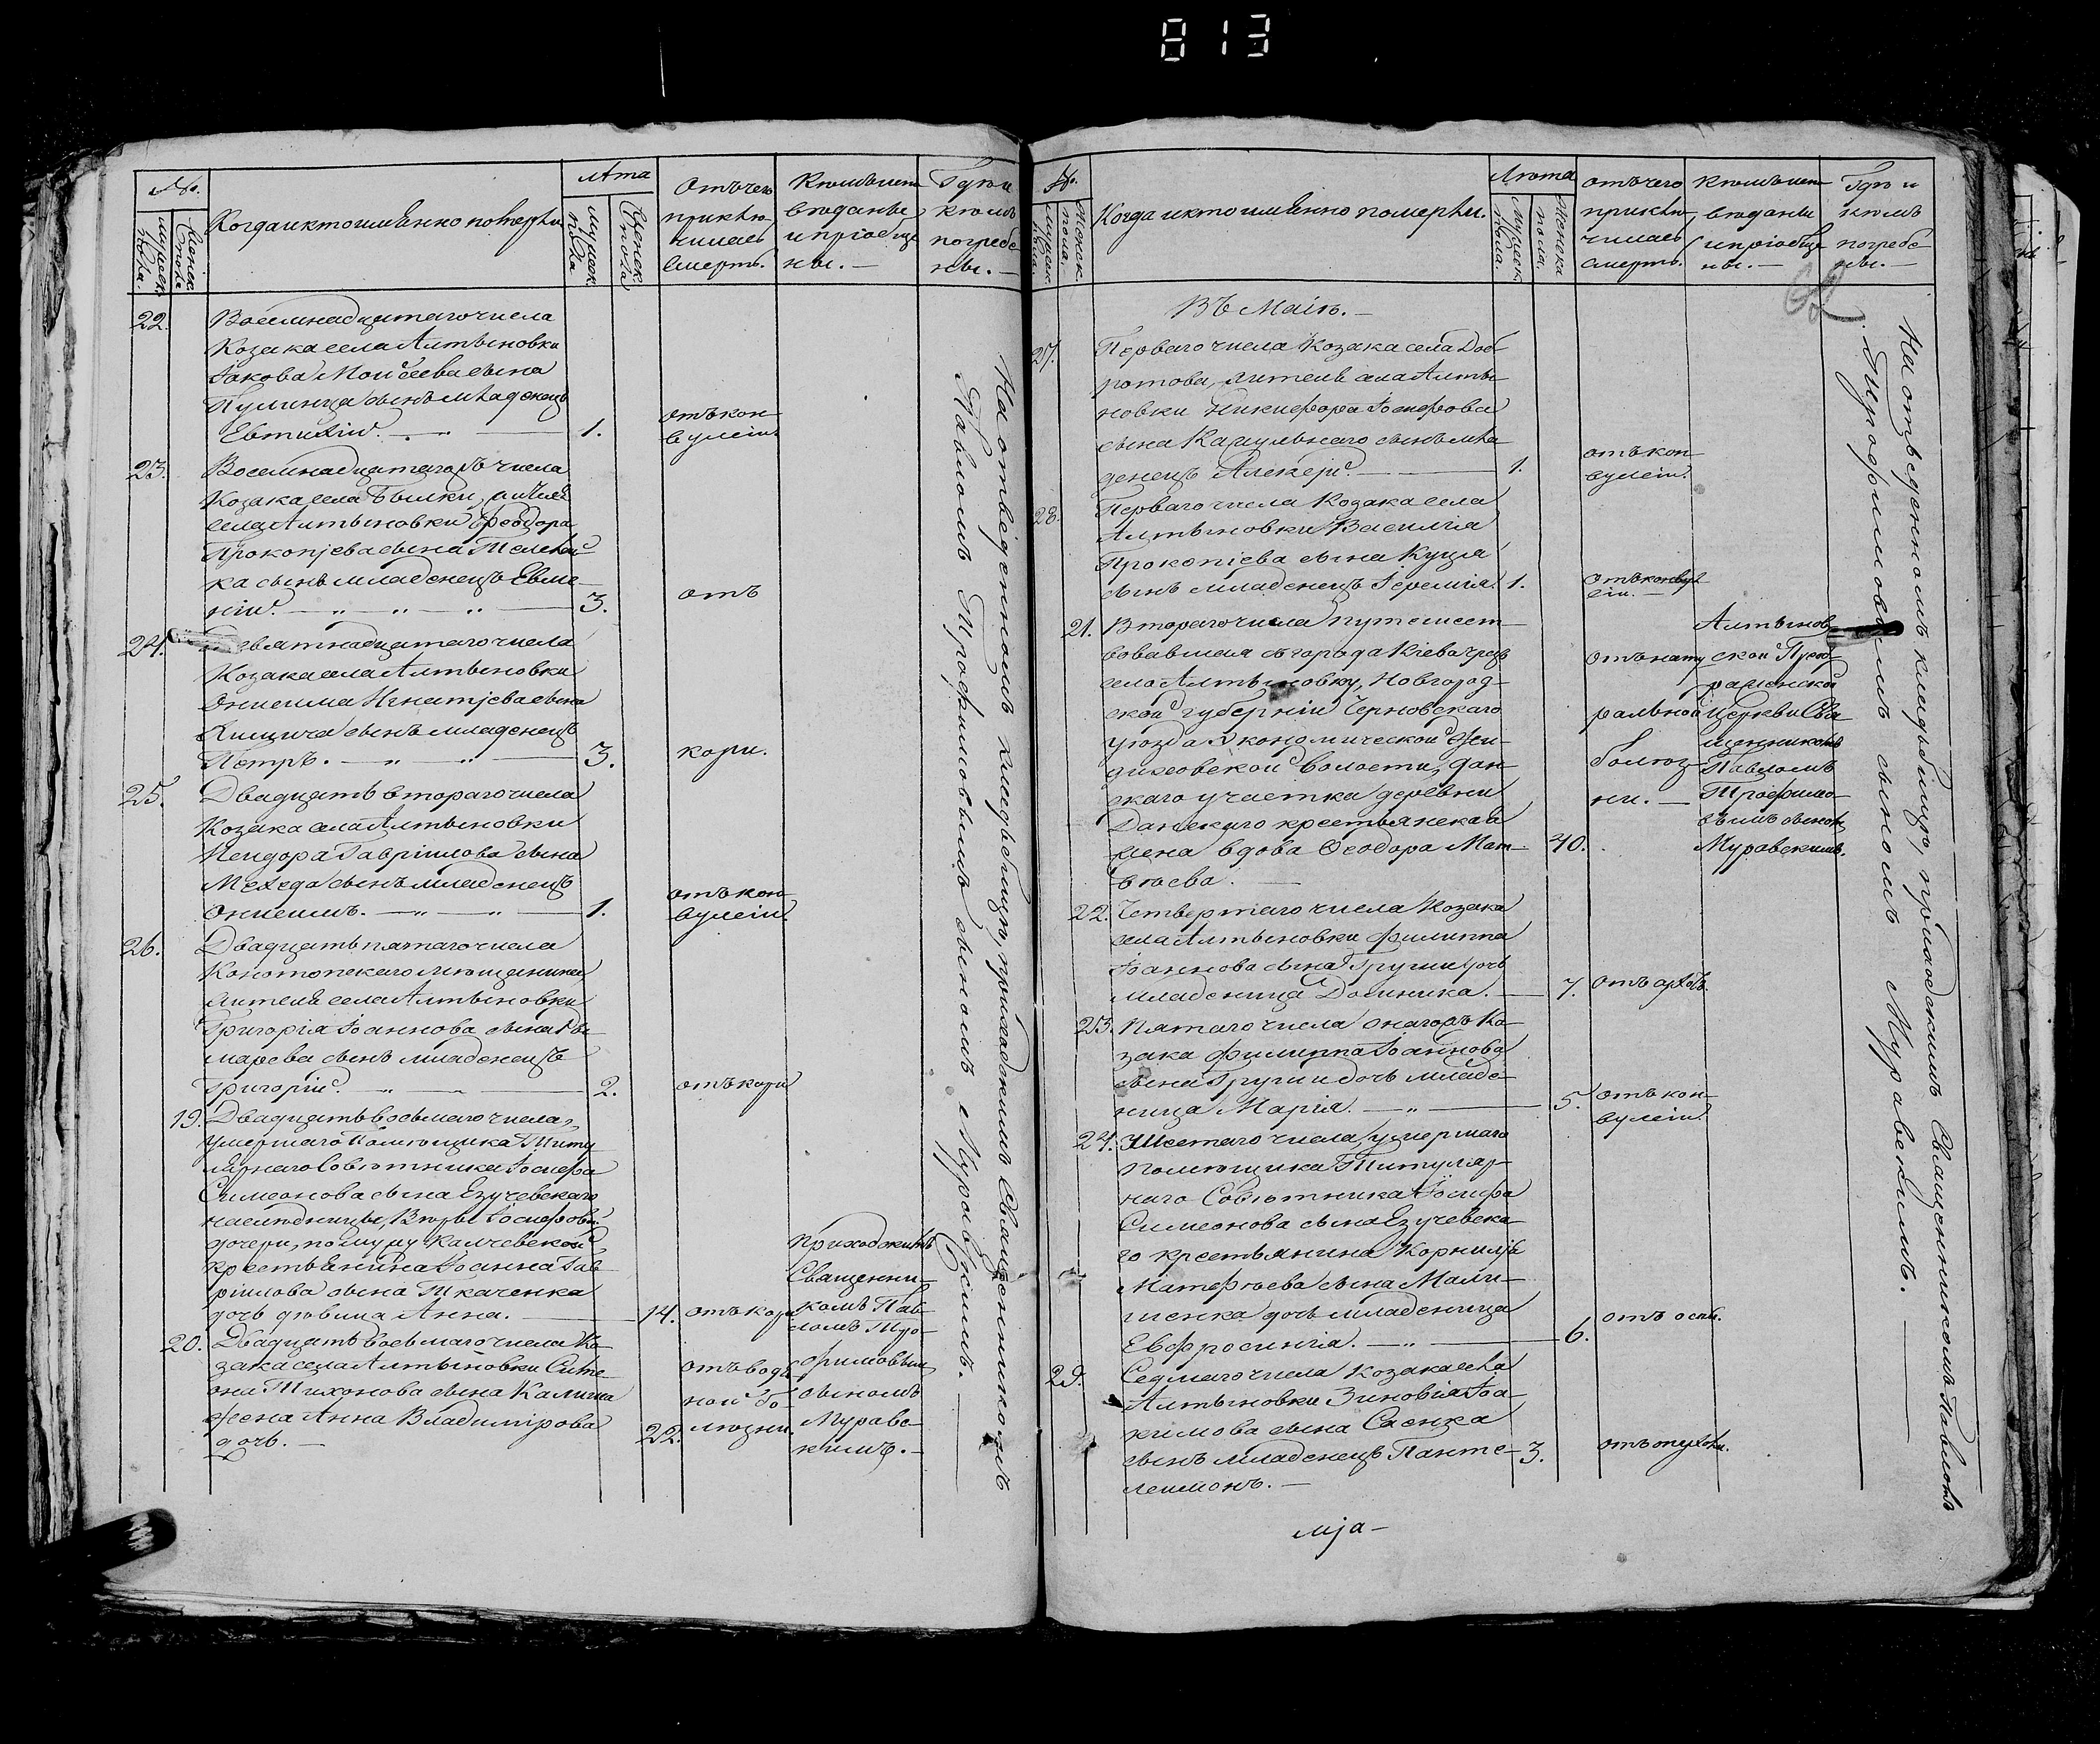 813
№.
Мужеск. пола.
Женск. пола
Когда и кто имѣнно померли
Лѣта
Мужеск. пола
Женск. пола
Отъ чего
приклю-
чилась
смерть.
Кѣмъ испо-
вѣданы
и пріобще
ны. —
Гдѣ и
кѣмъ
погребе
ны. —
22.
Восемнадцятаго числа
Козака села Алтыновки
Іакова Моисеева сына
сынъ младенецъ
Евтихій. — 1.
отъ кон
вулсій.
23.
Восемнадцятагожъ числа
Козака села жителя
села Алтыновки Феодора
Прокопіева сына
ка сынъ младенецъ Евме
ній. — 3.
отъ
24.
Девятнадцятаго числа
Козака села Алтыновки
Онисима Игнатіева сына
сынъ младенецъ
Петръ. — 3.
кори.
25.
Двадцять втораго числа
Козака села Алтыновки
Исидора Гавріилова сына
Мехеда сынъ младенецъ
Онисимъ. — 1.
отъ кон
вулсій
26.
Двадцять пятаго числа
Конотопскаго мѣщанина
жителя села Алтыновки
Григорія Іоаннова сына
марева сынъ младенецъ
Григорій. — 2.
отъ кори
19.
Двадцять восьмаго числа,
умершаго Помѣщика Титу
лярнаго Совѣтника Іосифа
Симеонова сына Езучевскаго
наслѣдницы, Вѣры Іосифовой
дочери, по мужу Калчевской
крестьянина Іоанна Гав
ріилова сына Ткаченка
дочь дѣвица Анна. — 14.
отъ кори
Приходскимъ
Священни-
комъ Пав-
ломъ Тро-
фимовымъ
сыномъ
Муравс-
кимъ. —
20.
Двадцять восьмаго числа Ко-
зака села Алтыновки Симе
она Тихонова сына
жена Анна Владимірова
дочь. — 22.
отъ водя
ной бо-
лѣзни.
На отведенномъ кладбищѣ, приходскимъ Священникомъ
Павломъ Трофимовымъ сыномъ Муравскимъ. —
№.
Мужеск. пола.
Женск. пола.
Когда и кто имѣнно померли.
Лѣта
Мужеск. пола.
Женска пола.
отъ чего
приклю-
чилась
смерть.
Кѣмъ испо-
вѣданы
и пріобще
ны. —
Гдѣ и
кѣмъ
погребе
ны. —
62
Въ Маіѣ. —
27.
Перваго числа Козака села Доб-
ротова, жителя села Алты-
новки Никифора Іосифова
сына сынъ мла
денецъ Алексій. — 1.
отъ кон-
вулсій.
28.
Перваго числа Козака села
Алтыновки Василія
Прокопіева сына Куцля
сынъ младенецъ Іеремія. 1.
отъ конвул
сій. —
21.
Втораго числа путешест-
вовавшая съ города Кіева чрезъ
село Алтыновку, Новгород-
ской губерніи
уѣзда экономической
волости, дан-
скаго участка деревни
Данскаго крестьянская
жена вдова Феодора Мат-
вѣева. — 40.
отъ нату
ральной
болѣз-
ни. —
Алтынов-
ской Преоб-
раженской
Церкви Свя
щенникомъ
Павломъ
Трофимо-
вымъ сыномъ
Муравскимъ.
22.
Четвертаго числа Козака
села Алтыновки Филиппа
Іоаннова сына Груши дочь
младеница Домника. — 7.
23.
Пятаго числа онагожъ Ко-
зака Филиппа Іоаннова
сына Груши дочь младе
ница Марія. — 5.
отъ кон-
вулсій.
24.
Шестаго числа, умершаго
помѣщика Титуляр-
наго Совѣтника Іосифа
Симеонова сына Езучевска
го крестьянина Корнилія
Матфѣева сына Мали-
шенка дочь младеница
Евфросинія. — 6.
отъ оспы.
29.
Седмаго числа Козака села
Алтыновки Зиновія Іоа-
кимова сына Саенка
сынъ младенецъ Панте-
леимонъ. — 3.
отъ опухоли.
На отведенномъ кладбищѣ, приходскимъ Священникомъ Павломъ
Трофимовымъ сыномъ Муравскимъ. —
мја —